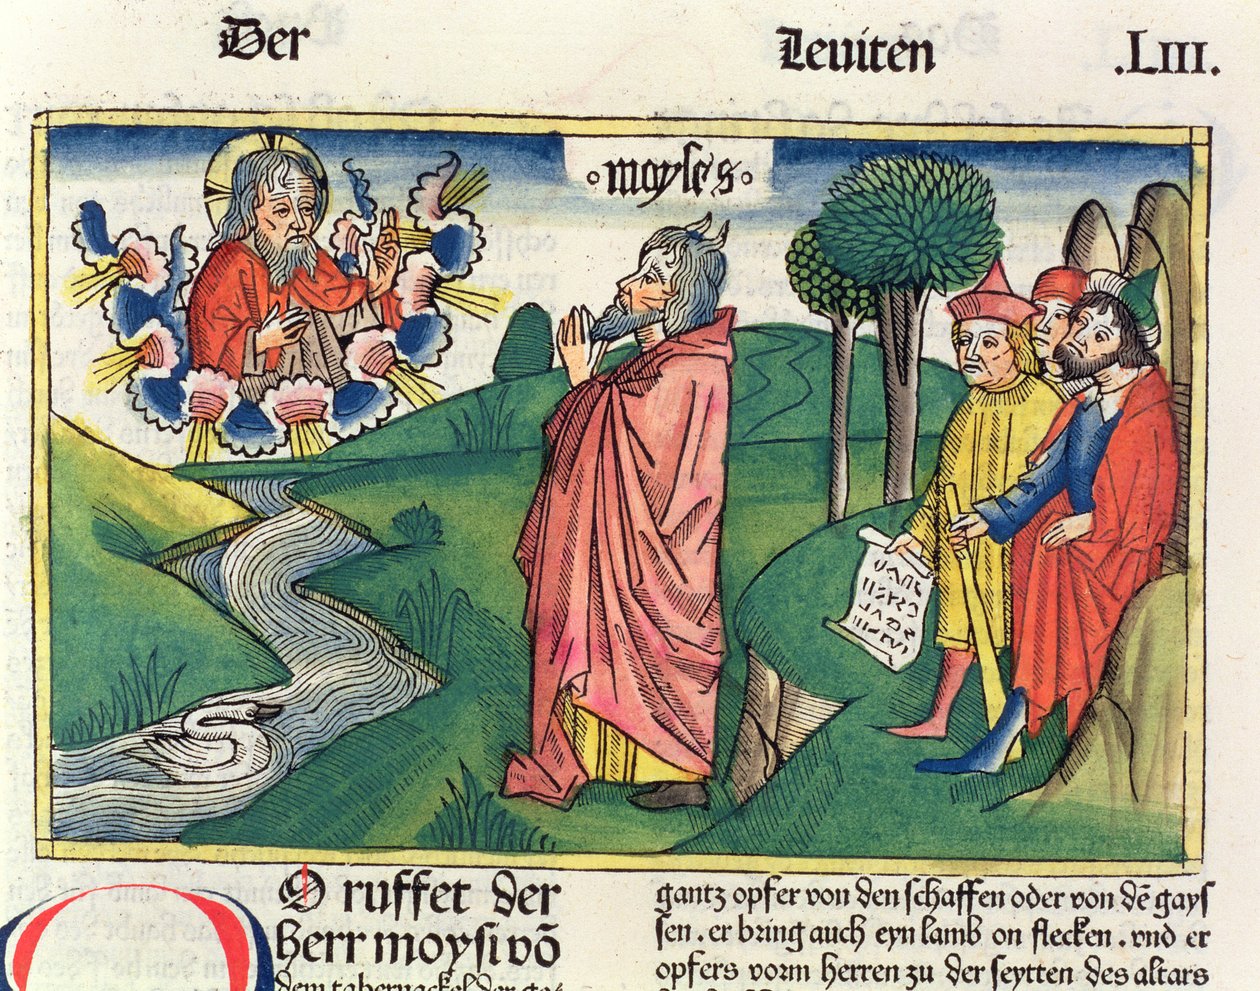 Der Leuiten .LIII.
moyses
O ruffet der
herr moysi võ
dem tabernackel der ge⸗
gantz opfer von den schaffen oder von dẽ gays
sen . er bring auch eyn lamb on flecken . vnd er
opfers vorm herren zu der seytten des altars